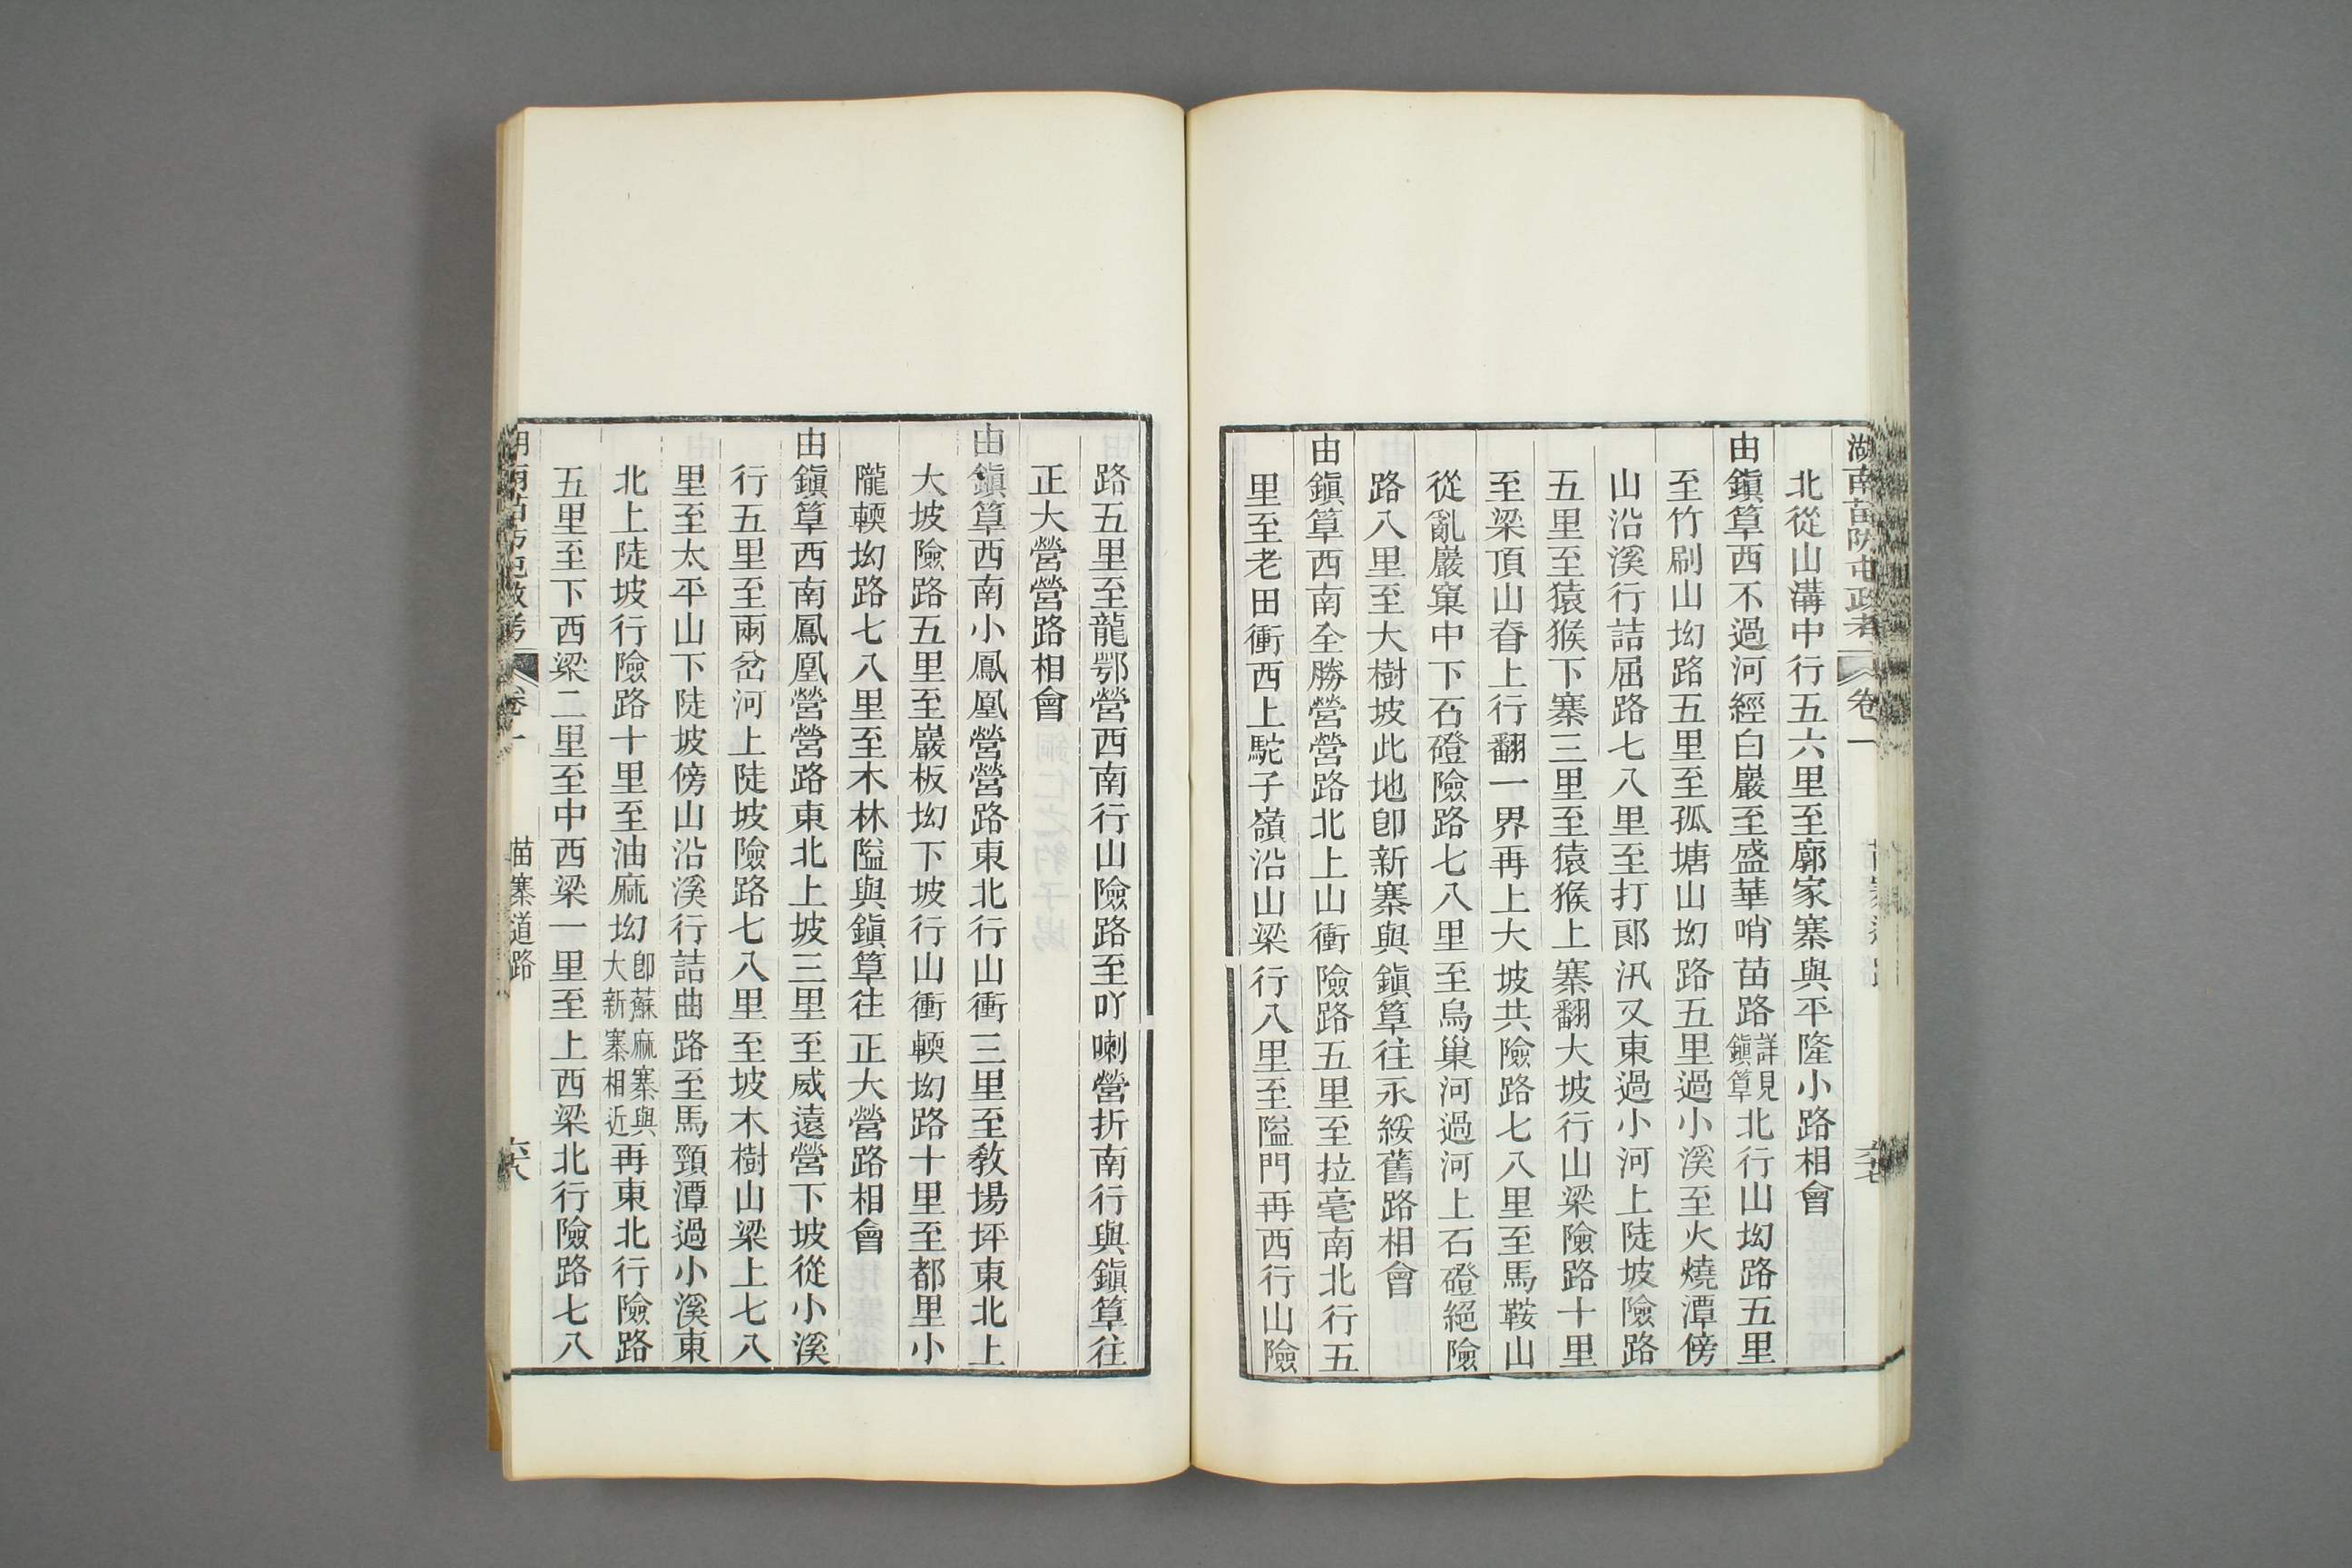 湖南苗防屯政考 卷一
北從山溝中行五六里至廓家寨與平隆小路相會
由鎭筸西不過河經白巖至盛華哨苗路詳見鎭筸北行山坳路五里
至竹刷山坳路五里至孤塘山坳路五里過小溪至火燒潭傍
山沿溪行詰屈路七八里至打郎汛又東過小河上陡坡險路
五里至猿猴下寨三里至猿猴上寨翻大坡行山梁險路十里
至梁頂山脊上行翻一界再上大坡共險路七八里至馬鞍山
從亂巖窠中下石磴險路七八里至烏巢河過河上石磴絕險
路八里至大樹坡此地卽新寨與鎭筸往永綏舊路相會
由鎭筸西南全勝營營路北上山衝險路五里至拉毫南北行五
里至老田衝西上駝子嶺沿山梁行八里至隘門再西行山險
路五里至龍鄂營西南行山險路至吖喇營折南行與鎭筸往
正大營營路相會
由鎭筸西南小鳳凰營營路東北行山衝三里至教場坪東北上
大坡險路五里至巖板坳下坡行山衝輭坳路十里至都里小
隴輭坳路七八里至木林隘與鎭筸往正大營路相會
由鎭筸西南鳳凰營營路東北上坡三里至威遠營下坡從小溪
行五里至兩岔河上陡坡險路七八里至坡木樹山梁上七八
里至太平山下陡坡傍山沿溪行詰曲路至馬頸潭過小溪東
北上陡坡行險路十里至油麻坳卽蘇麻寨與大新寨相近再東北行險路
五里至下西梁二里至中西梁一里至上西梁北行險路七八
湖南苗防屯政考 卷一 苗寨道路 六八